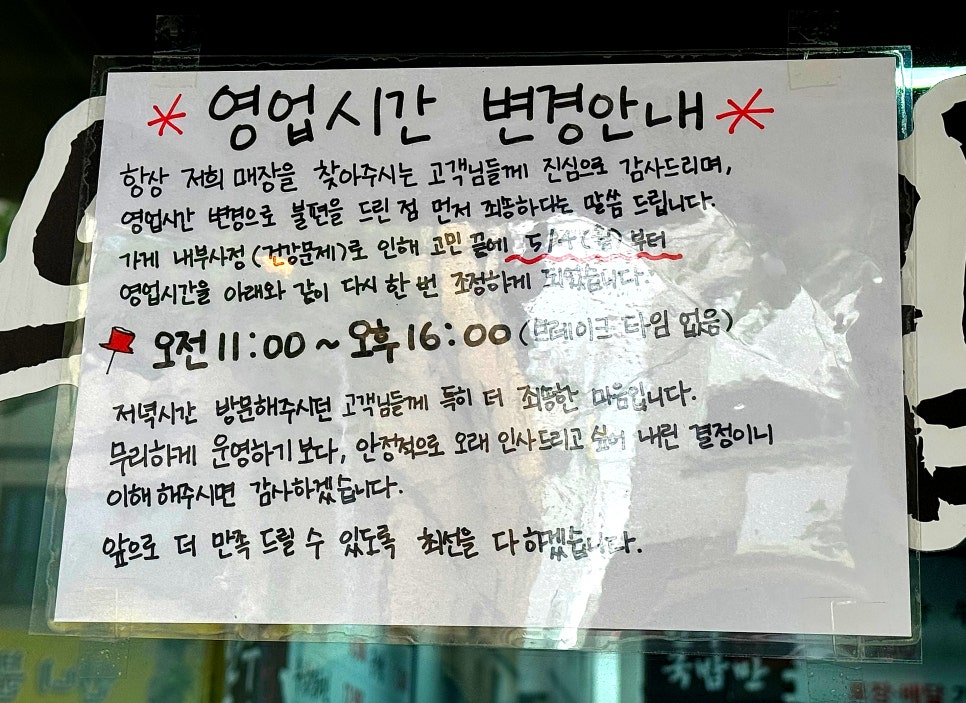 * 영업시간 변경안내 *
항상 저희 매장을 찾아주시는 고객님들께 진심으로 감사드리며,
영업시간 변경으로 불편을 드린 점 먼저 죄송하다는 말씀 드립니다.
가게 내부사정 (건강문제)로 인해 고민 끝에 5/4 (월) 부터
영업시간을 아래와 같이 다시 한 번 조정하게 되었습니다.
오전 11:00 ~ 오후 16:00 (브레이크 타임 없음)
저녁시간 방문해주시던 고객님들께 특히 더 죄송한 마음입니다.
무리하게 운영하기 보다, 안정적으로 오래 인사드리고 싶어 내린 결정이니
이해 해주시면 감사하겠습니다.
앞으로 더 만족 드릴 수 있도록 최선을 다 하겠습니다.
국밥만